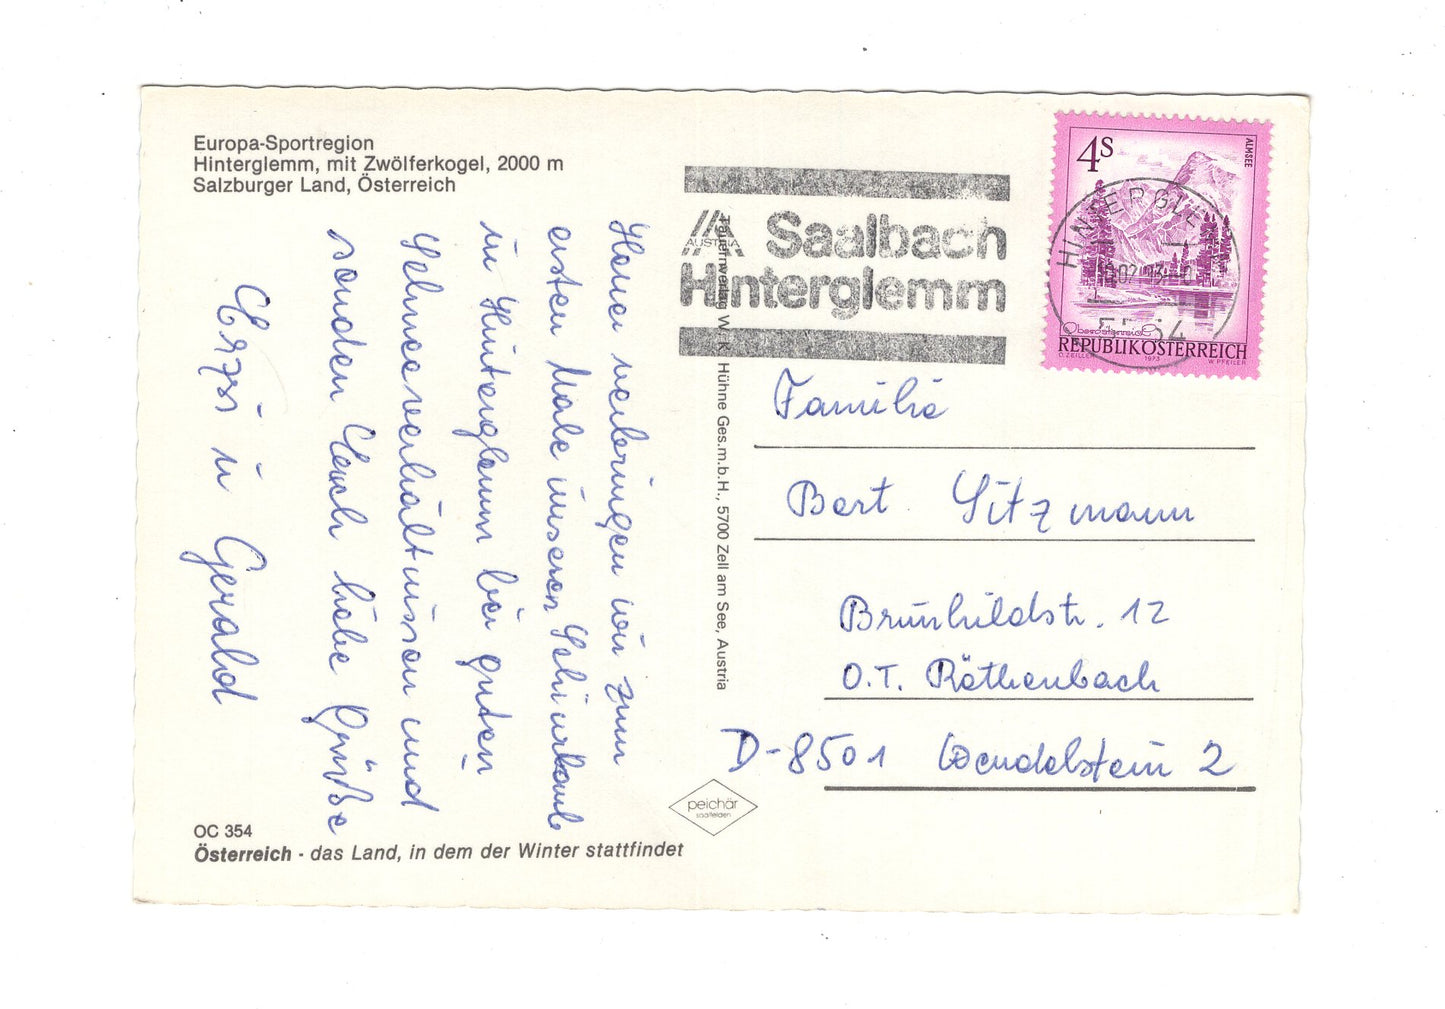 Europa-Sportregion
Hinterglemm, mit Zwölferkogel, 2000 m
Salzburger Land, Österreich
Heuer verbringen wir zum
ersten Male unseren Schiurlaub
in Hinterglemm bei guten
Schneeverhältnissen und
senden Euch liebe Grüße
Gerald
OC 354
Österreich - das Land, in dem der Winter stattfindet
Tauernverlag W. K. Hühne Ges.m.b.H., 5700 Zell am See, Austria
peichär
saalfelden
AUSTRIA
Saalbach
Hinterglemm
4S
ALMSEE
HINTERGLEMM
Oberösterreich
REPUBLIK ÖSTERREICH
O. ZEILLER 1973 W. PFEILER
Familie
Bert Sitzmann
Brunhildstr. 12
O.T. Röthenbach
D-8501 Wendelstein 2